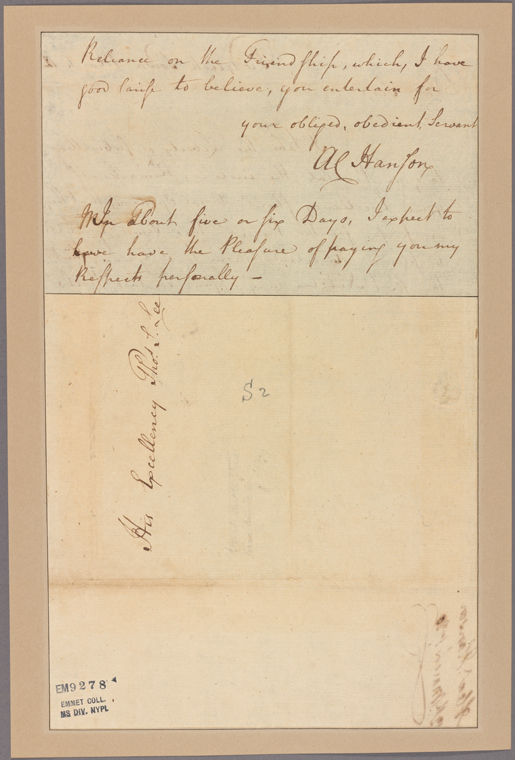 Reliance on the Friendship, which, I have
good Cause to believe, you entertain for
your obliged, obedient Servant
AC Hanson
In about five or six Days, I expect to
have the Pleasure of paying you my
Respects personally —
His Excellency Tho.s S. Lee
S2
EM9278
EMMET COLL.
MS DIV. NYPL